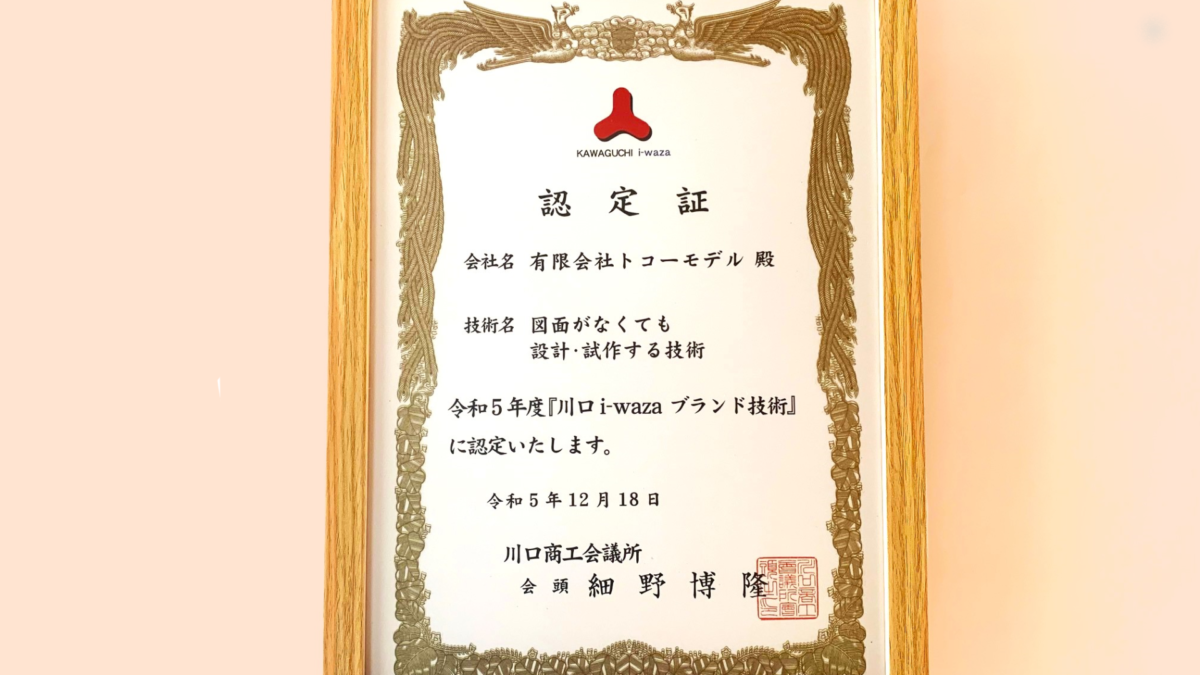 KAWAGUCHI i-waza
認定証
会社名 有限会社トコーモデル 殿
技術名 図面がなくても
設計・試作する技術
令和5年度『川口i-waza ブランド技術』
に認定いたします。
令和5年12月18日
川口商工会議所
会頭 細野博隆